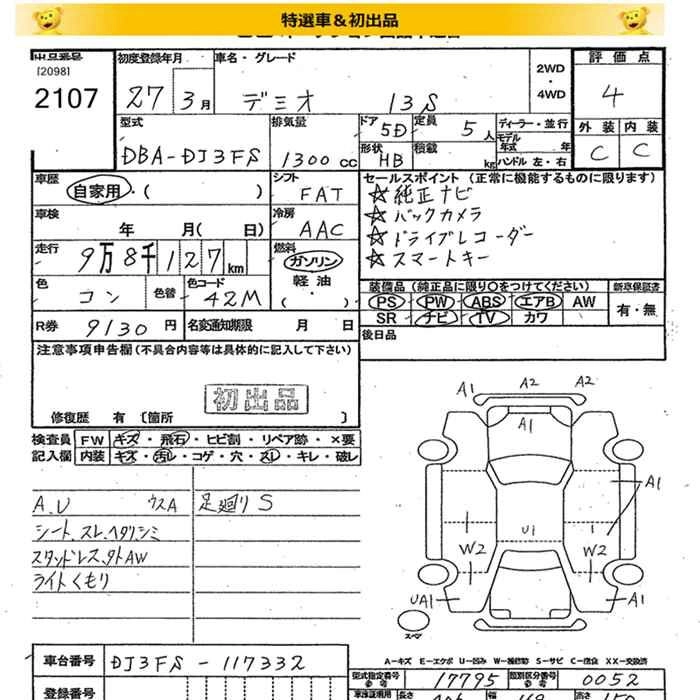 特選車＆初出品
出品番号
[2098]
2107
初度登録年月
27 3月
車名・グレード
デミオ 13S
2WD
・
4WD
評価点
4
外装 内装
C C
型式
DBA-DJ3FS
排気量
1300 cc
ドア 5D
定員 5人
形状 HB
積載 kg
ディーラー・並行
モデル年式 年
ハンドル 左・右
車歴
自家用・( )
シフト
FAT
車検
年 月( 日)
冷房
AAC
走行
9万8千127km
燃料
ガソリン
軽油
( ・ )
色
コン
色替
色コード
42M
R券 9130円
名変通知期限 月 日
セールスポイント (正常に機能するものに限ります)
☆純正ナビ
☆バックカメラ
☆ドライブレコーダー
☆スマートキー
装備品 (純正品に限り〇をつけてください)
PS PW ABS エアB AW
SR ナビ TV カワ
新車保証書
有・無
後日品
注意事項申告欄 (不具合内容等は具体的に記入して下さい)
初出品
修復歴 有〔箇所 〕
検査員記入欄
FW キズ・飛石・ヒビ割・リペア跡・×要
内装 キズ・汚レ・コゲ・穴・スレ・キレ・破レ
A.U ウスA
足廻りS
シート、スレ、ヘタリ、シミ
スタッドレス、外AW
ライトくもり
A1 A2 A2
A1
U1
W2 W2
UA1 A1
スペア
A-キズ E-エクボ U-凹み W-補修跡 S-サビ C-腐食 XX-交換済
車台番号
DJ3FS-117332
型式指定番号
参考
17795
類別区分番号
参考
0052
登録番号
車検証明用
長さ
幅
高さ